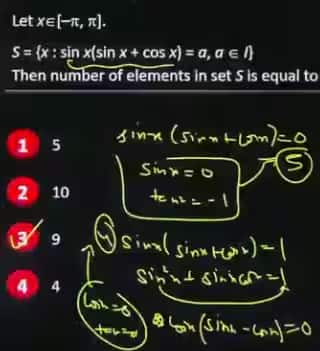 Let x∈[−π, π].
S = {x : sin x(sin x + cos x) = a, a ∈ I}
Then number of elements in set S is equal to
1 5
2 10
3 9
4 4
sinx (sinx + cosx) = 0
sinx = 0
5
tanx = -1
4 sinx (sinx + cosx) = 1
sin²x + sinx cosx = 1
cosx = 0
cosx (sinx - cosx) = 0